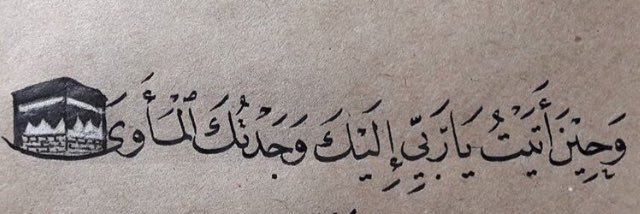 وَحِيْنَ أَتَيْتُ يَا رَبِّي إِلَيْكَ وَجَدْتُكَ الْمَأْوَى